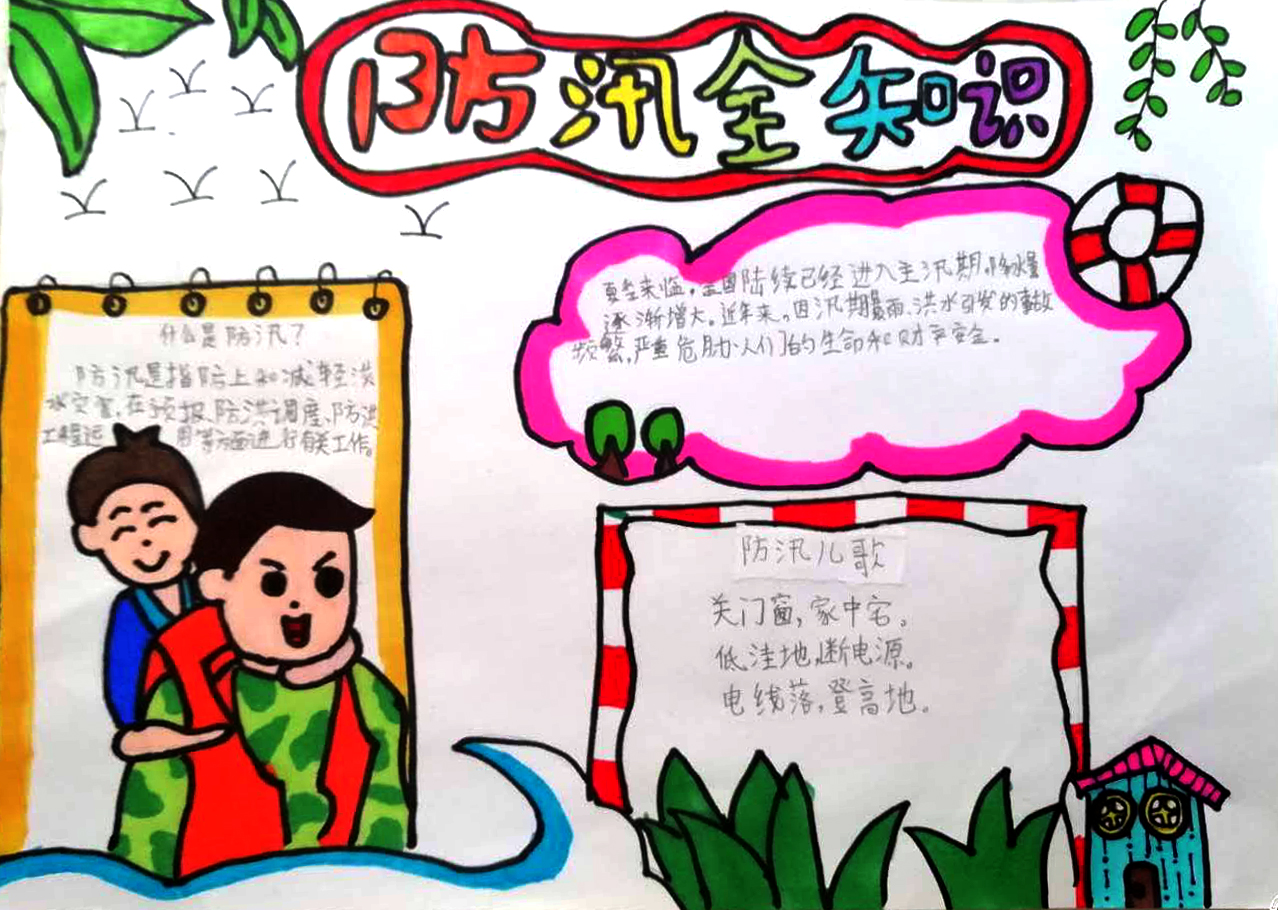 防汛全知识
什么是防汛？
防汛是指防止和减轻洪
水灾害，在预报、防洪调度、防洪
工程运 用等方面进行有关工作。
夏季来临，全国陆续已经进入主汛期，降水量
逐渐增大。近年来，因汛期暴雨、洪水引发的事故
频繁，严重危胁人们的生命和财产安全。
防汛儿歌
关门窗，家中宅。
低洼地，断电源。
电线落，登高地。